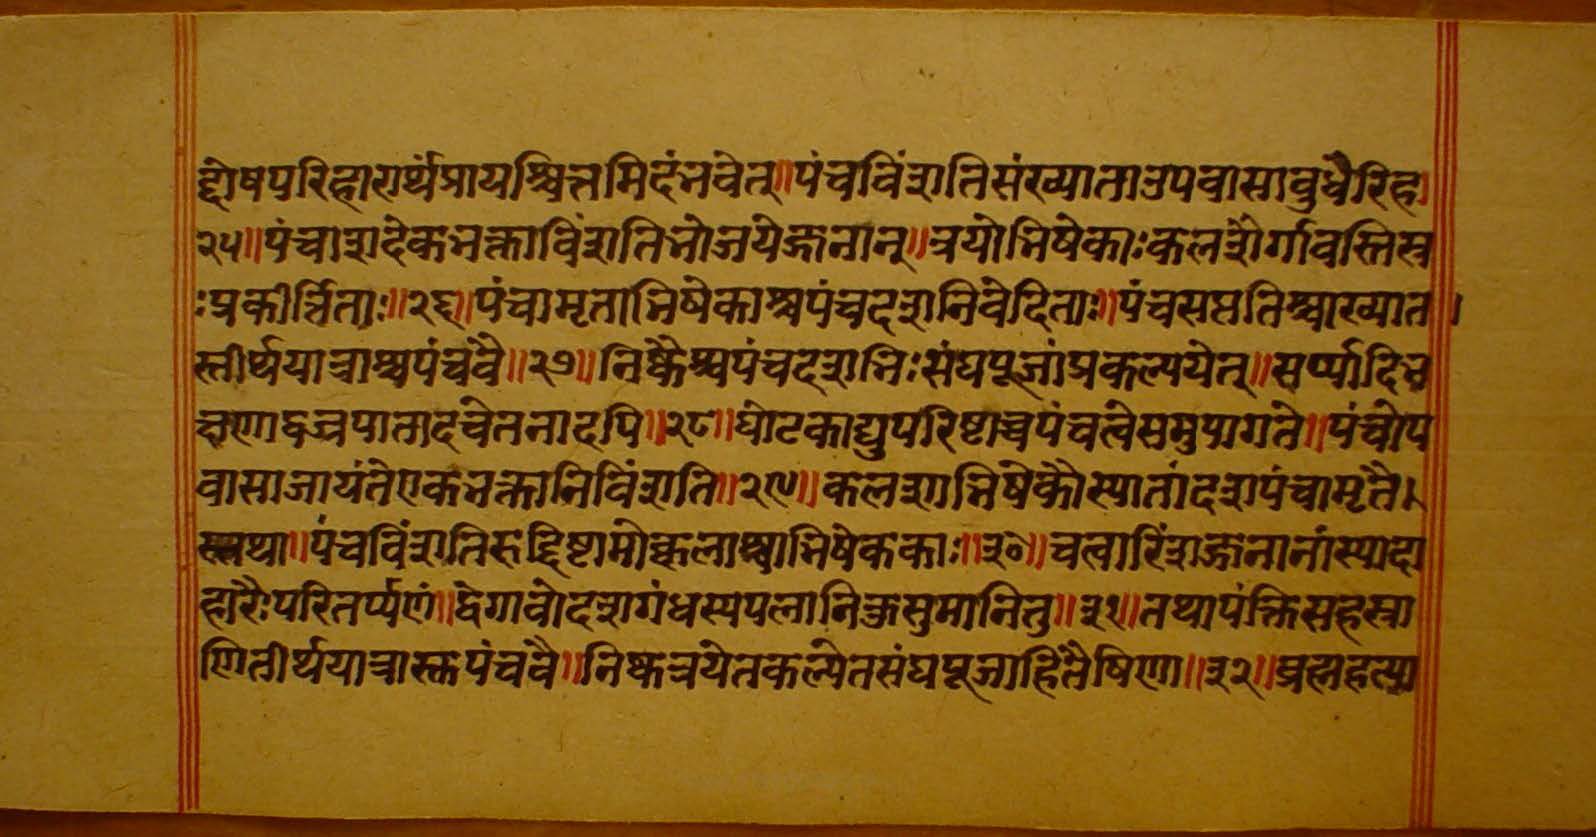 द्दोषपरिहारार्थंप्रायश्चित्तमिदंभवेत्॥पंचविंशतिसंख्याताउपवासाबुधैरिह।
२५॥पंचाशदेकभक्ताविंशतिभोजयेज्जनान्॥त्रयोभिषेकाःकलशैर्गावस्तिस्र
ःप्रकीर्त्तिताः॥२६॥पंचामृताभिषेकाश्चपंचदशनिवेदिताः॥पंचसप्ततिश्चाख्यात
स्तीर्थयात्राश्चपंचवै॥२७॥निष्कैश्चपंचदशभिःसंघपूजांप्रकल्पयेत्॥सर्प्पादिभ
क्षणाद्वज्रपातादचेतनादपि॥२८॥घोटकाद्युपरिष्टाच्चपंचत्वेसमुपागते॥पंचोप
वासाजायंतेएकभक्तानिविंशति॥२९॥कलशाभिषेकौस्यातांदशपंचामृतै।
स्तथा॥पंचविंशतिरुद्दिष्टामोक्कलाश्चाभिषेककाः॥३०॥चत्वारिंशज्जनानांस्यादा
हारैःपरितर्प्पणं॥द्वेगावौदशगंधस्यपलानिकुसुमानितु॥३१॥तथापंक्तिसहस्रा
णितीर्थयात्रास्तपंचवै॥निष्कत्रयेतकल्पेतसंघपूजाहितैषिणा॥३२॥ब्रह्महत्या